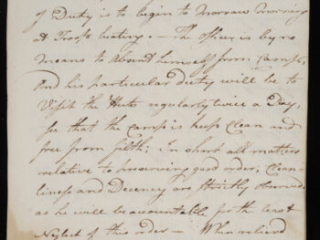 of Duty is to begin to Morrow Morning
at Troop beating. – The officer is by no
means to absent himself from Camp,
and his particular duty will be to
Visit the Huts regularly twice a Day,
see that the Camp is keep Clean and
free from filth; In short all matters
relative to preserving good order, Clean-
liness and Decency are strictly observed
as he will be accountable for the least
Neglect of this order – When relieved